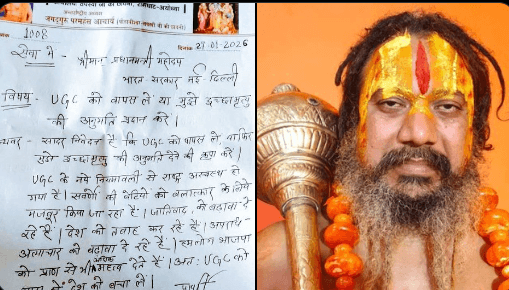 जगद्गुरु परमहंस आचार्य
1008
दिनांक 27-01-2026
सेवा में - श्रीमान् प्रधानमंत्री महोदय
भारत सरकार नई दिल्ली
विषय - UGC को वापस लें या मुझे इच्छामृत्यु
की अनुमति प्रदान करें।
सादर निवेदन है कि UGC को वापस लें, या फिर
मुझे इच्छामृत्यु की अनुमति देने की कृपा करें।
UGC के नये नियमावली से राष्ट्र अस्वस्थ हो
गया है। सवर्णों की बेटियों को बलात्कार के लिये
मजबूर किया जा रहा है। जातिवाद, को बढ़ावा दे
रहे हैं। देश को तबाह कर रहे हैं। अपराध
अत्याचार को बढ़ावा दे रहे हैं। हमलोग भाजपा
को प्राण से भी अधिक महत्व देते हैं। अतः UGC को
देश को बचा लें।